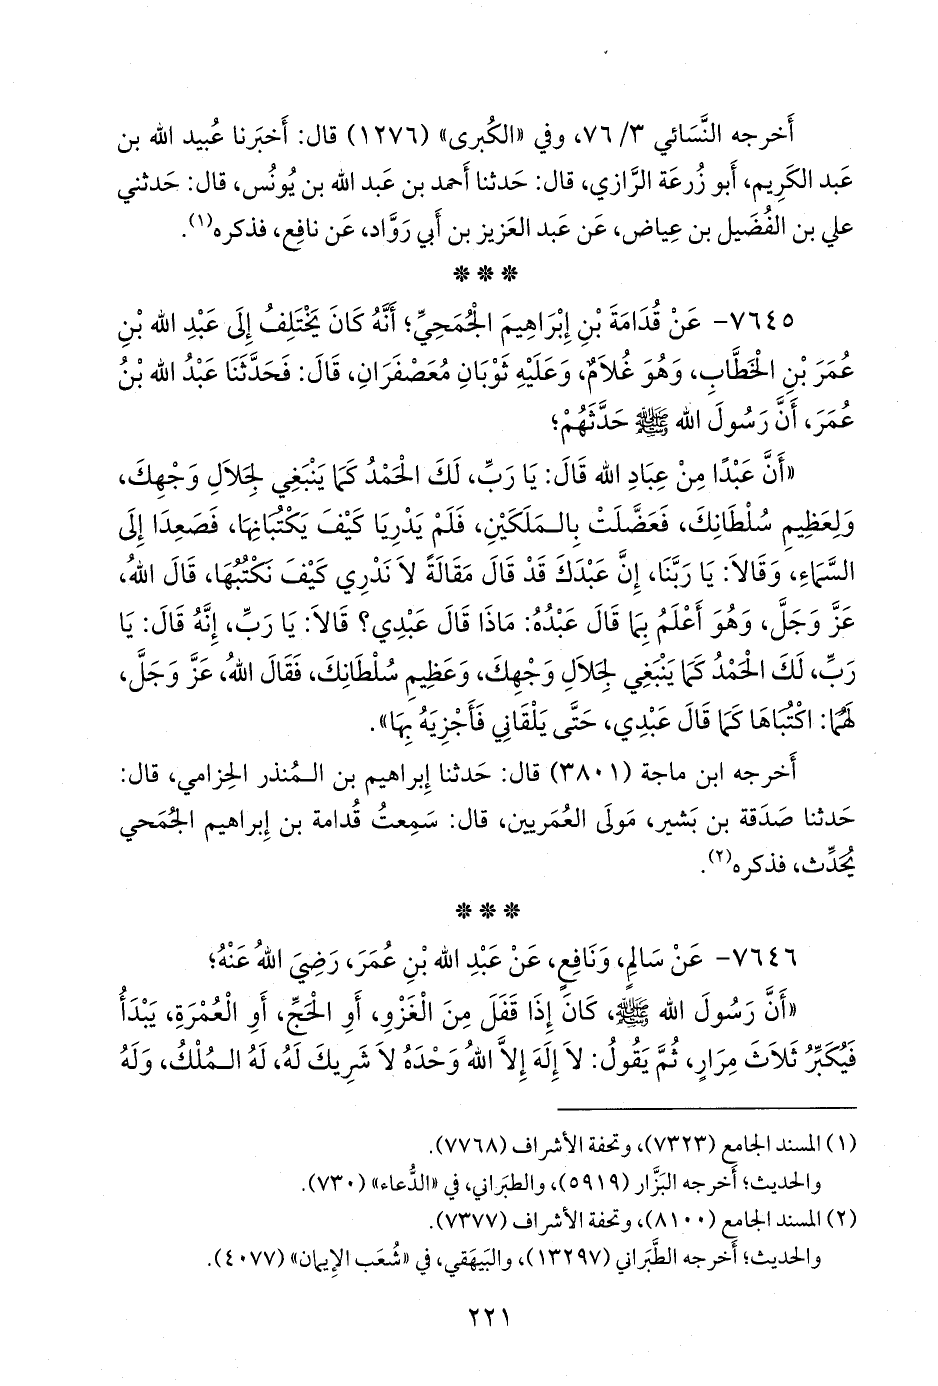 أَخرجه النَّسَائي ٣/ ٧٦، وفي «الكُبرى» (١٢٧٦) قال: أَخبَرنا عُبيد الله بن
عَبد الكَرِيم، أَبو زُرعَة الرَّازي، قال: حَدثنا أَحمد بن عَبد الله بن يُونُس، قال: حَدثني
علي بن الفُضَيل بن عِياض، عَن عَبد العَزيز بن أَبي رَوَّاد، عَن نافِع، فذكره(١).
* * *
٧٦٤٥- عَنْ قُدَامَةَ بْنِ إِبْرَاهِيمَ الْجُمَحِيِّ؛ أَنَّهُ كَانَ يَخْتَلِفُ إِلَى عَبْدِ الله بْنِ
عُمَرَ بْنِ الْخَطَّابِ، وَهُوَ غُلَامٌ، وَعَلَيْهِ ثَوْبَانِ مُعَصْفَرَانِ، قَالَ: فَحَدَّثَنَا عَبْدُ الله بْنُ
عُمَرَ، أَنَّ رَسُولَ الله ﷺ حَدَّثَهُمْ؛
«أَنَّ عَبْدًا مِنْ عِبَادِ الله قَالَ: يَا رَبِّ، لَكَ الْحَمْدُ كَمَا يَنْبَغِي لِجَلَالِ وَجْهِكَ،
وَلِعَظِيمِ سُلْطَانِكَ، فَعَضَّلَتْ بِالْمَلَكَيْنِ، فَلَمْ يَدْرِيَا كَيْفَ يَكْتُبَانِهَا، فَصَعِدَا إِلَى
السَّمَاءِ، وَقَالاَ: يَا رَبَّنَا، إِنَّ عَبْدَكَ قَدْ قَالَ مَقَالَةً لاَ نَدْرِي كَيْفَ نَكْتُبُهَا، قَالَ اللهُ،
عَزَّ وَجَلَّ، وَهُوَ أَعْلَمُ بِمَا قَالَ عَبْدُهُ: مَاذَا قَالَ عَبْدِي؟ قَالاَ: يَا رَبِّ، إِنَّهُ قَالَ: يَا
رَبِّ، لَكَ الْحَمْدُ كَمَا يَنْبَغِي لِجَلَالِ وَجْهِكَ، وَعَظِيمِ سُلْطَانِكَ، فَقَالَ اللهُ، عَزَّ وَجَلَّ،
لَهُمَا: اكْتُبَاهَا كَمَا قَالَ عَبْدِي، حَتَّى يَلْقَانِي فَأَجْزِيَهُ بِهَا».
أَخرجه ابن ماجة (٣٨٠١) قال: حَدثنا إِبراهيم بن الـمُنذر الحِزامي، قال:
حَدثنا صَدَقة بن بَشير، مَولَى العُمَريين، قال: سَمِعتُ قُدامة بن إِبراهيم الجُمَحي
يُحَدِّث، فذكره(٢).
* * *
٧٦٤٦- عَنْ سَالِمٍ، وَنَافِعٍ، عَنْ عَبْدِ الله بْنِ عُمَرَ، رَضِيَ اللهُ عَنْهُ؛
«أَنَّ رَسُولَ الله ﷺ، كَانَ إِذَا قَفَلَ مِنَ الْغَزْوِ، أَوِ الْحَجِّ، أَوِ الْعُمْرَةِ، يَبْدَأُ
فَيُكَبِّرُ ثَلَاثَ مِرَارٍ، ثُمَّ يَقُولُ: لاَ إِلَهَ إِلاَّ اللهُ وَحْدَهُ لاَ شَرِيكَ لَهُ، لَهُ الـمُلْكُ، وَلَهُ
(١) المسند الجامع (٧٣٢٣)، وتحفة الأشراف (٧٧٦٨).
والحديث؛ أَخرجه البَزَّار (٥٩١٩)، والطبَراني، في «الدُّعاء» (٧٣٠).
(٢) المسند الجامع (٨١٠٠)، وتحفة الأشراف (٧٣٧٧).
والحديث؛ أَخرجه الطَّبَراني (١٣٢٩٧)، والبَيهَقي، في «شُعَب الإِيمان» (٤٠٧٧).
٢٢١